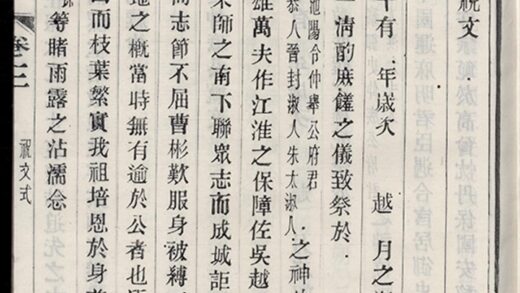 祝文
十有 年歲次 越 月之
清酌庶饈之儀致祭於
池陽令仲舉公府君
恭人晉封淑人朱太淑人 之神
雄萬夫作江淮之保障佐吳越
來師之南下聯眾志而成城詎
尚志節不屈曹彬歎服身被縛
之概當時無有逾於公者也
而枝葉繁實我祖培恩於身
等睹雨露之沾濡念
卷之二 祝文式